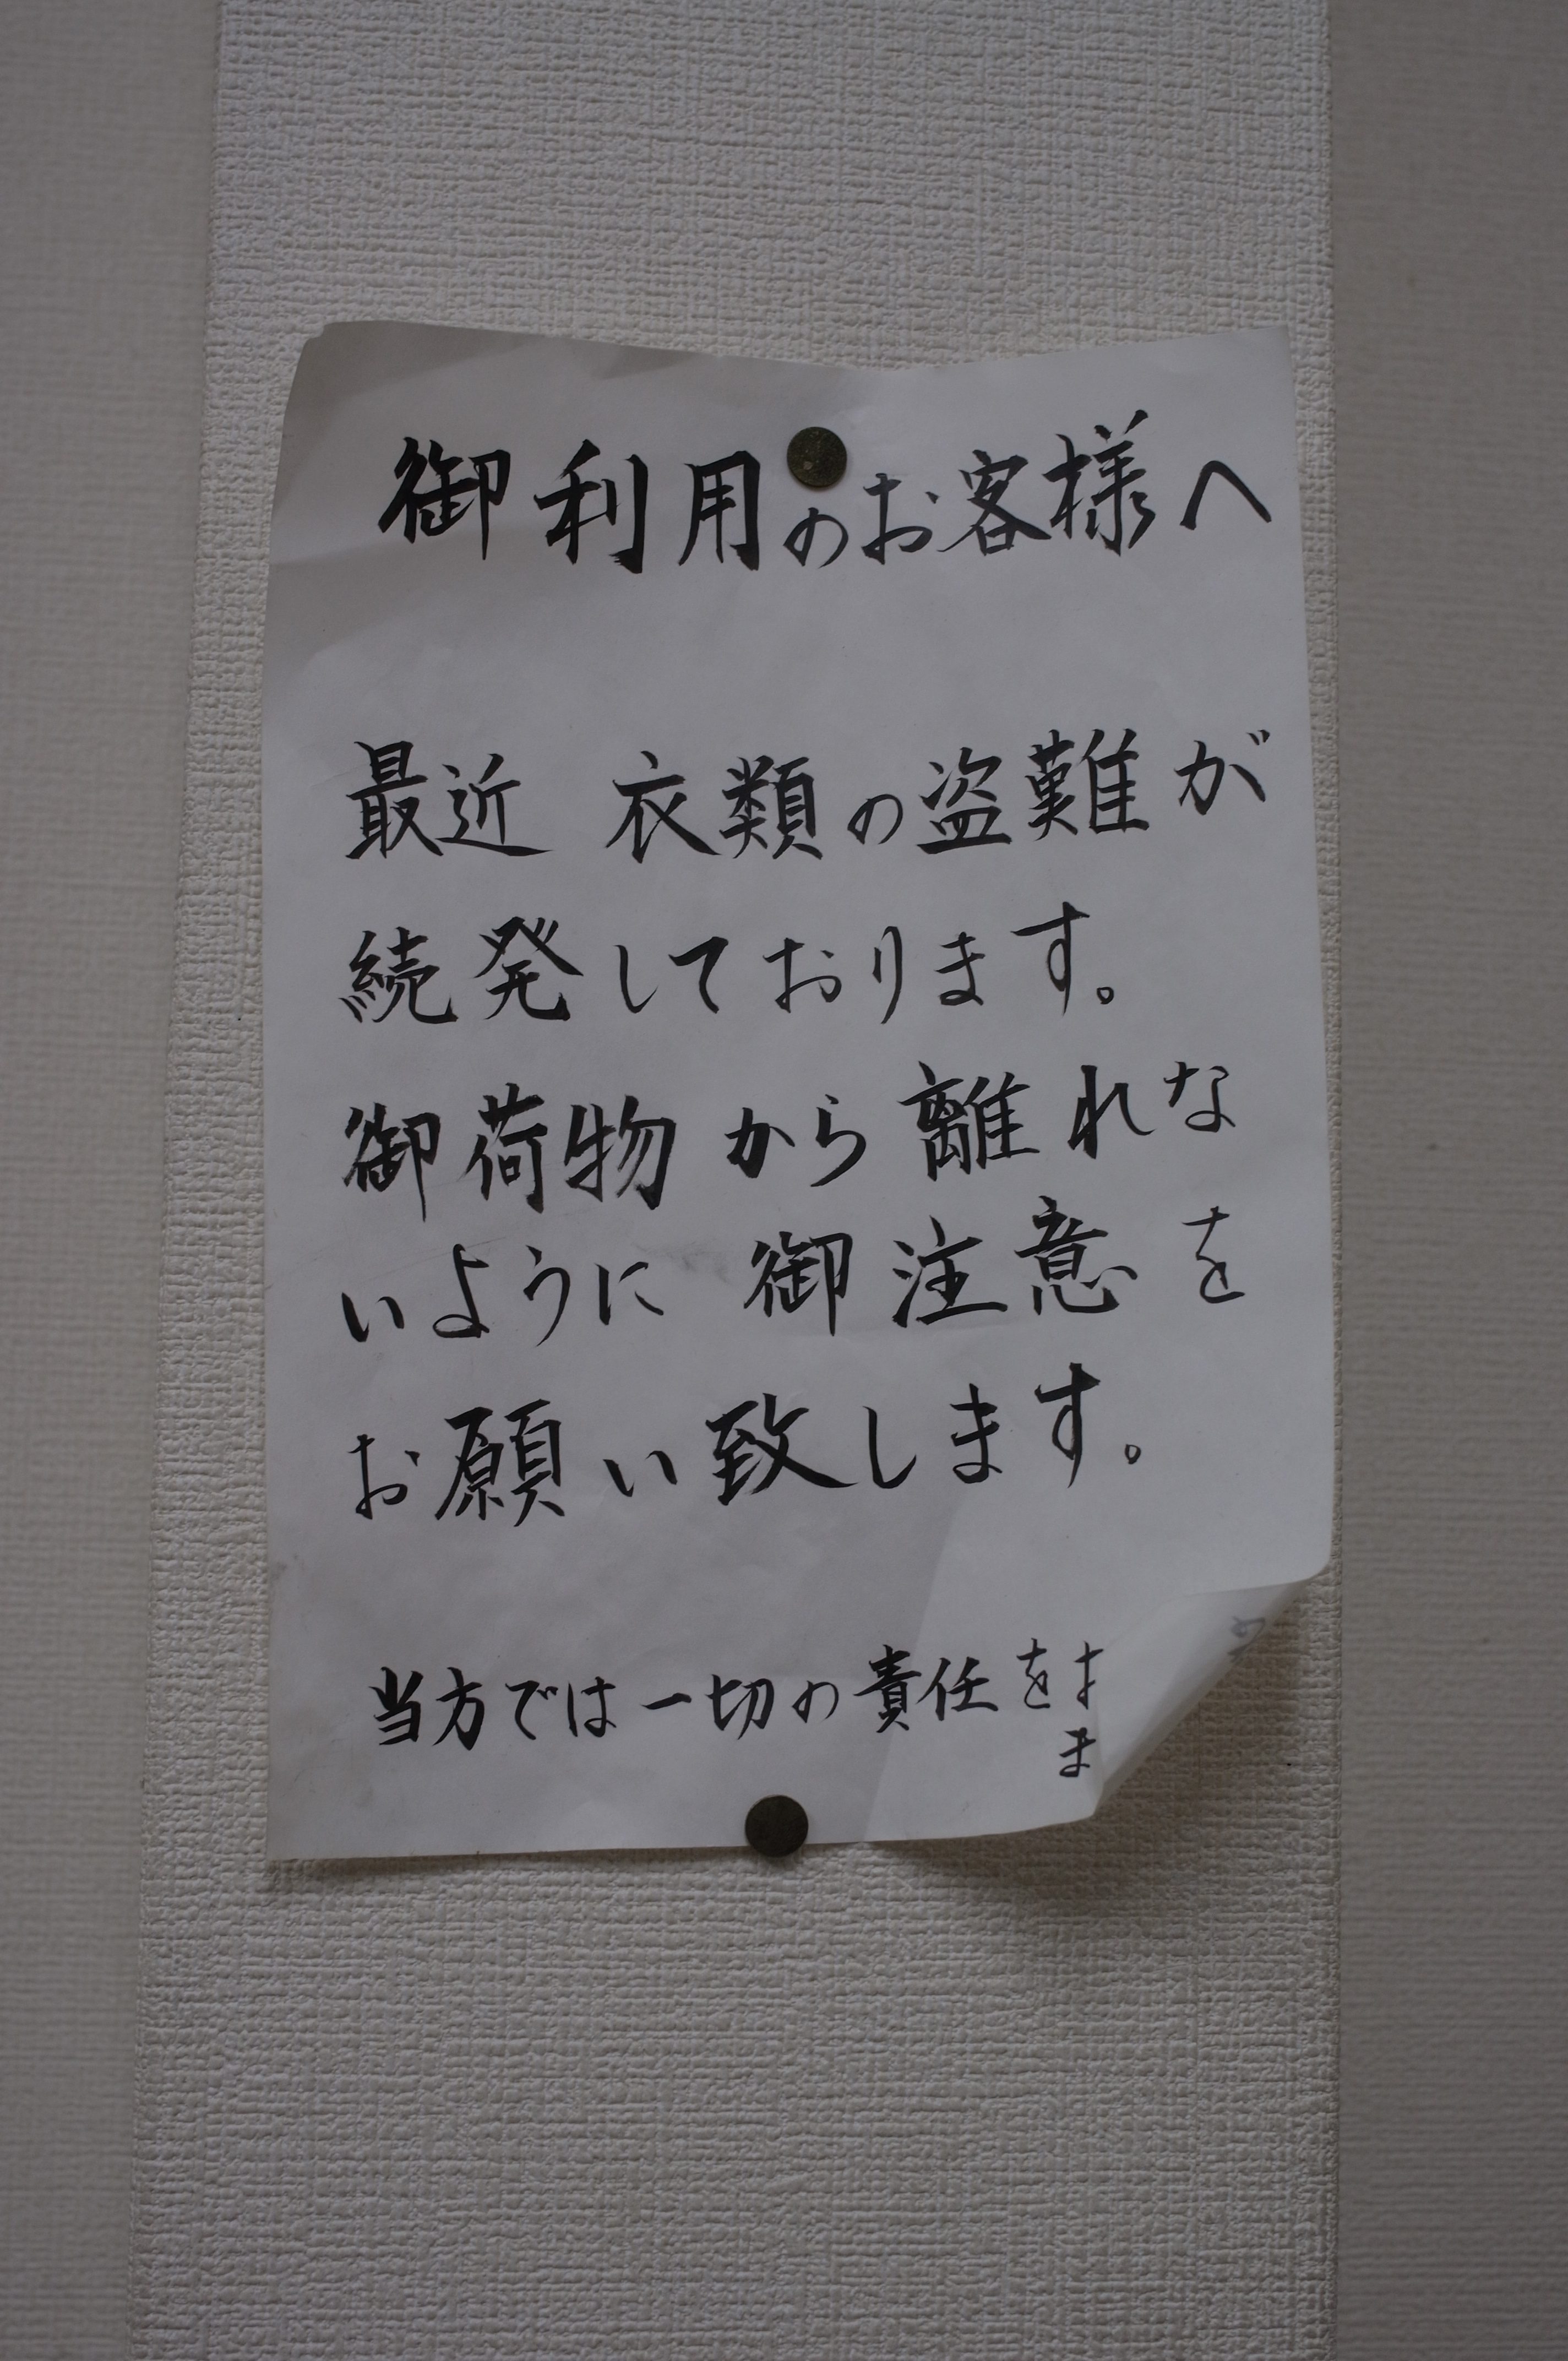 御利用のお客様へ
最近 衣類の盗難が
続発しております。
御荷物から離れな
いように 御注意を
お願い致します。
当方では一切の責任を
ま